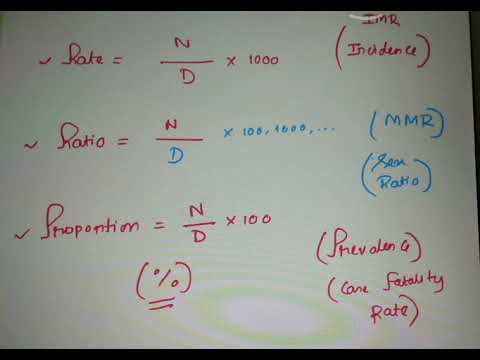 IMR
✓ Rate = N/D × 1000 (Incidence)
✓ Ratio = N/D × 100, 1000, ... (MMR)
(Sex Ratio)
✓ Proportion = N/D × 100
(%)
(Prevalence)
(Case Fatality Rate)